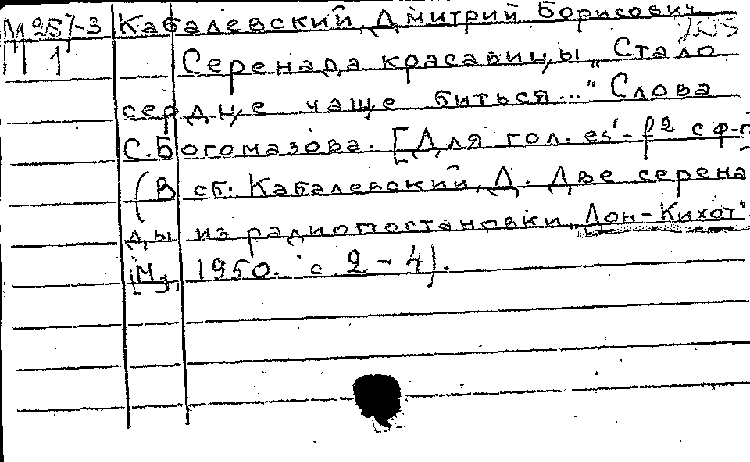 М 257-3 Кабалевский, Дмитрий Борисович
Серенада красавицы „Стало
сердце чаще биться..." Слова
С. Богомазова. [Для гол. es'-f2 с ф-п
(В сб: Кабалевский, Д. Две серена
ды из радиопостановки „Дон-Кихот"
[М.], 1950. с 2-4).